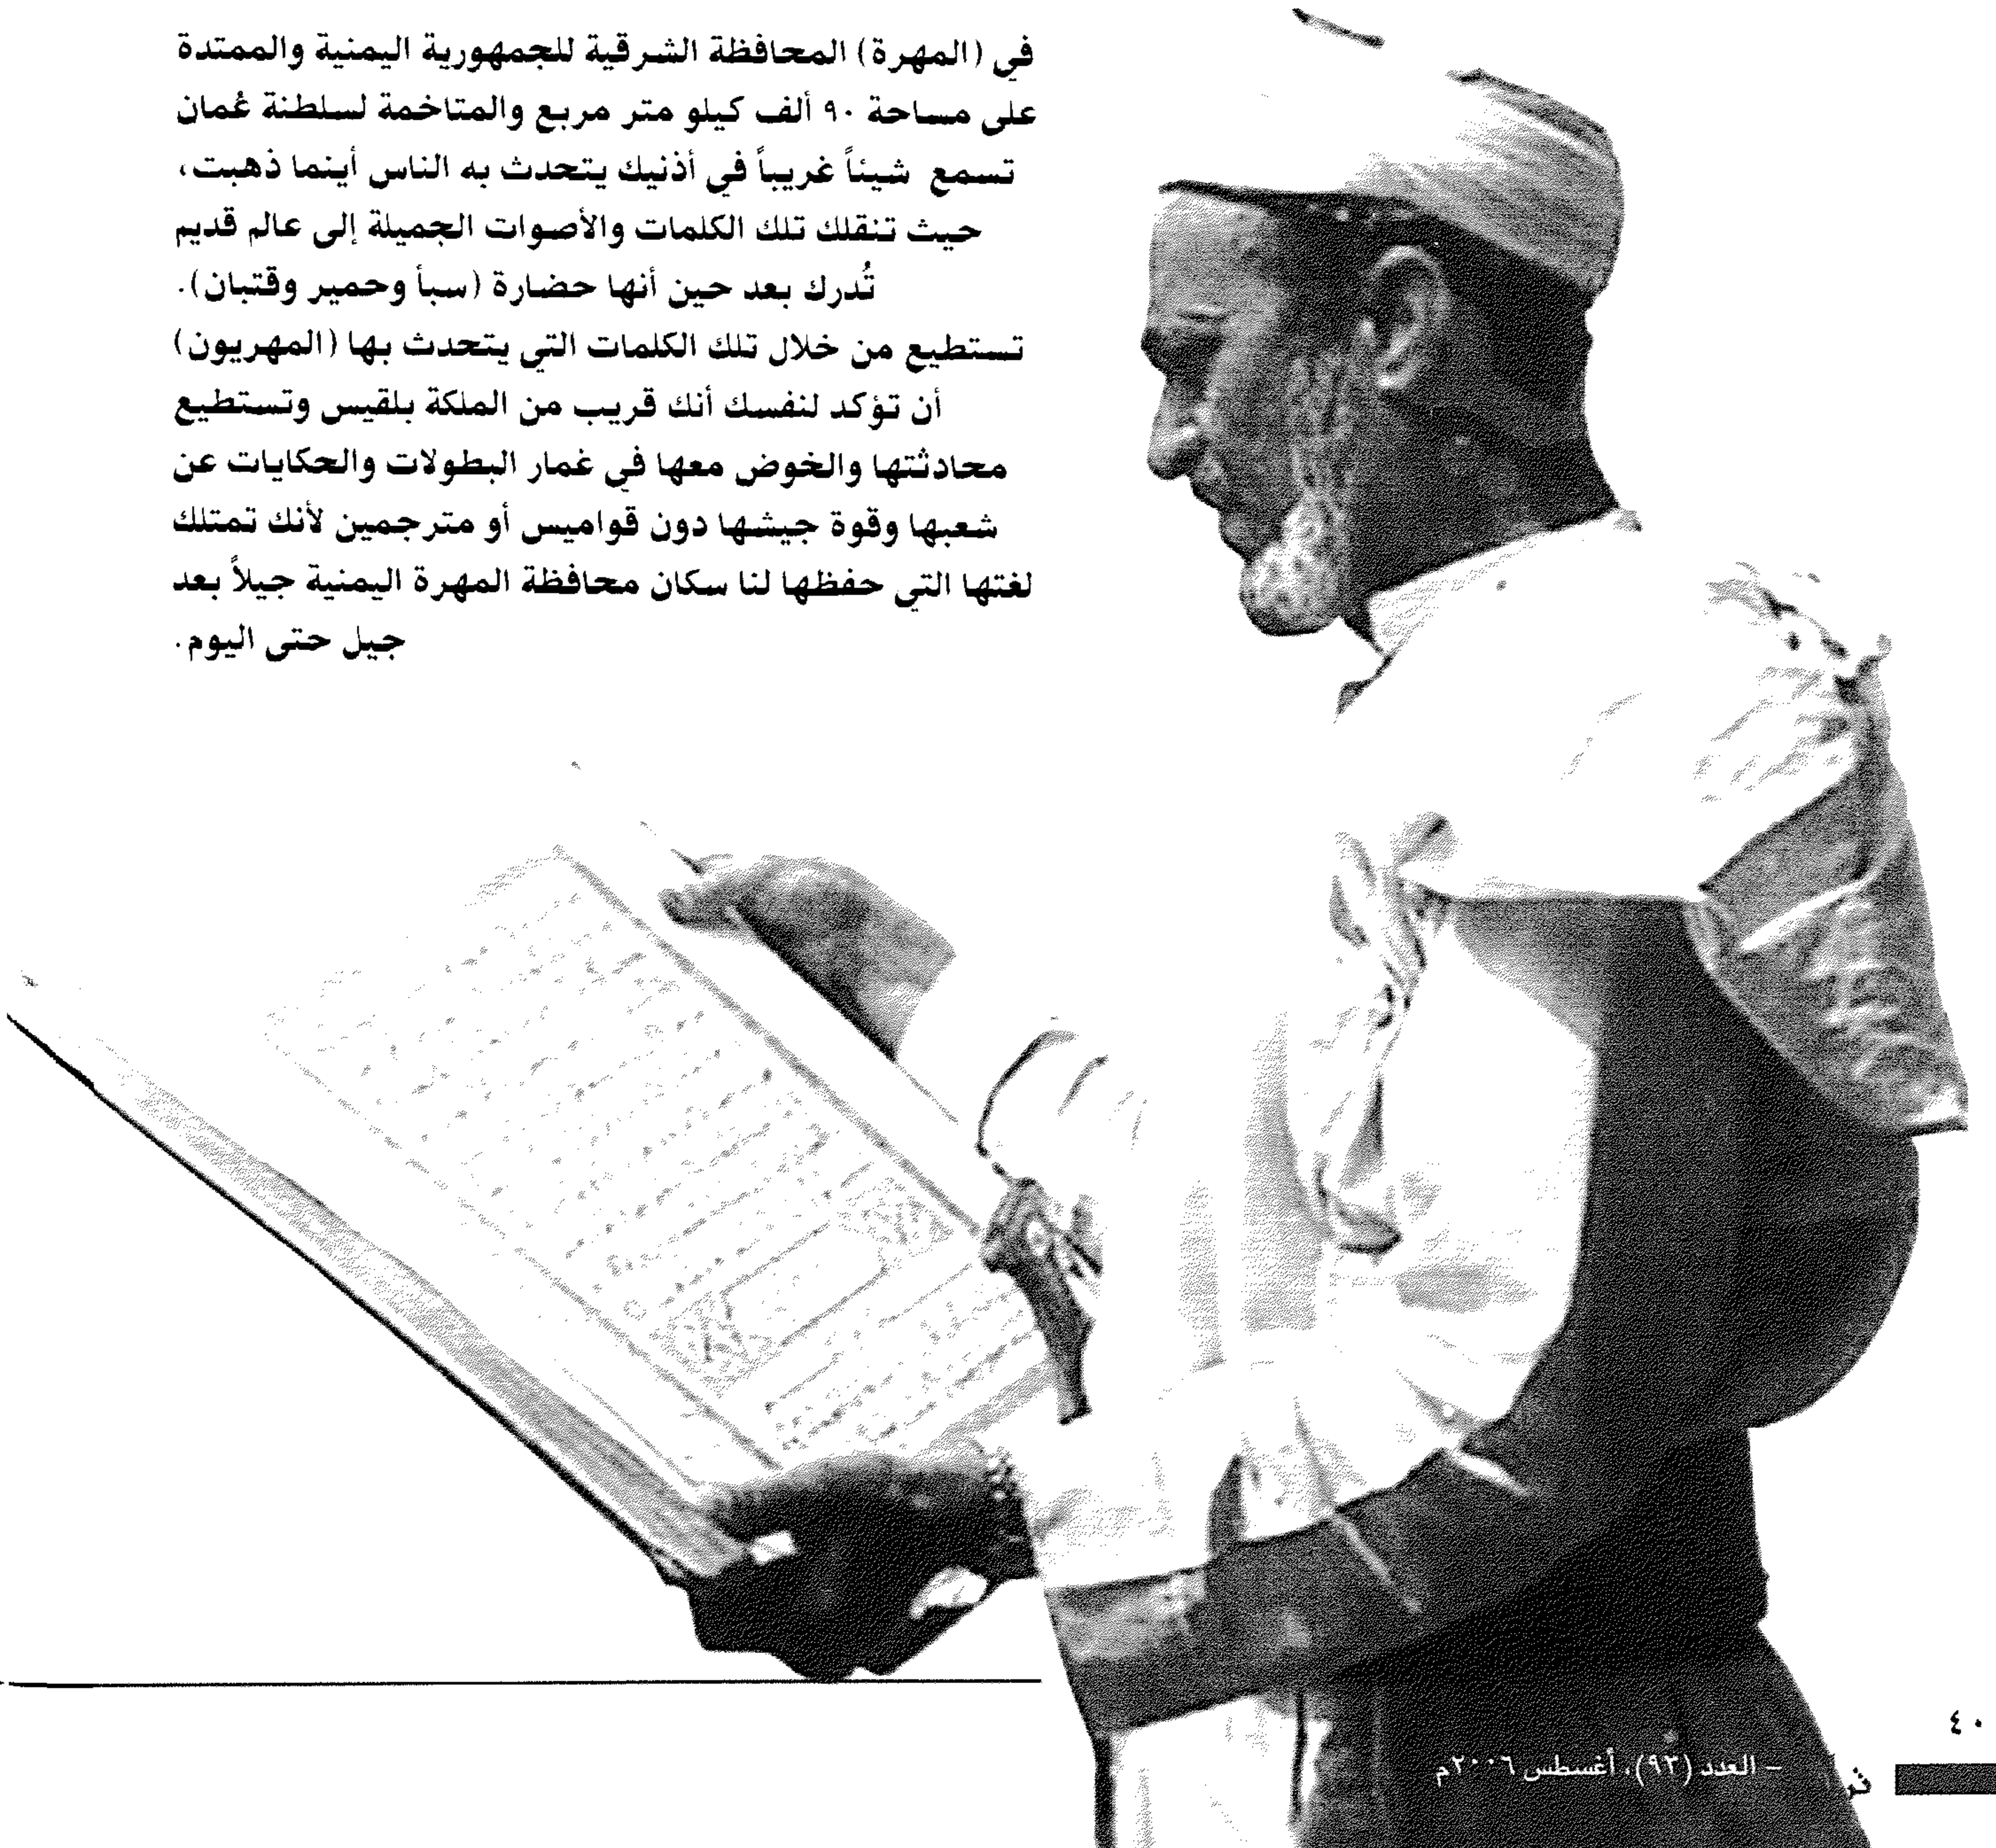 في (المهرة) المحافظة الشرقية للجمهورية اليمنية والممتدة
على مساحة ٩٠ ألف كيلو متر مربع والمتاخمة لسلطنة عُمان
تسمع شيئاً غريباً في أذنيك يتحدث به الناس أينما ذهبت،
حيث تنقلك تلك الكلمات والأصوات الجميلة إلى عالم قديم
تُدرك بعد حين أنها حضارة (سبأ وحمير وقتبان).
تستطيع من خلال تلك الكلمات التي يتحدث بها (المهريون)
أن تؤكد لنفسك أنك قريب من الملكة بلقيس وتستطيع
محادثتها والخوض معها في غمار البطولات والحكايات عن
شعبها وقوة جيشها دون قواميس أو مترجمين لأنك تمتلك
لغتها التي حفظها لنا سكان محافظة المهرة اليمنية جيلاً بعد
جيل حتى اليوم.
٤٠
- العدد (٩٣)، أغسطس ٢٠٠٦م